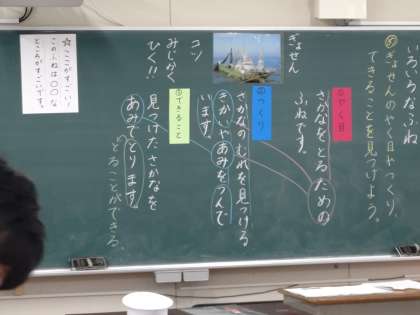 いろいろなふね
めぎょせんのやく目やつくり、
できることを見つけよう。
①やく目
ぎょせん
さかなをとるための
ふねです。
②つくり
さかなのむれを見つける
きかいやあみをつんで
います。
③できること
コツ
みじかく
ひく!!
見つけたさかなを
あみでとります。
とることができる。
☆ここがすごい!!
このふねは〇〇な
ところがすごいです。